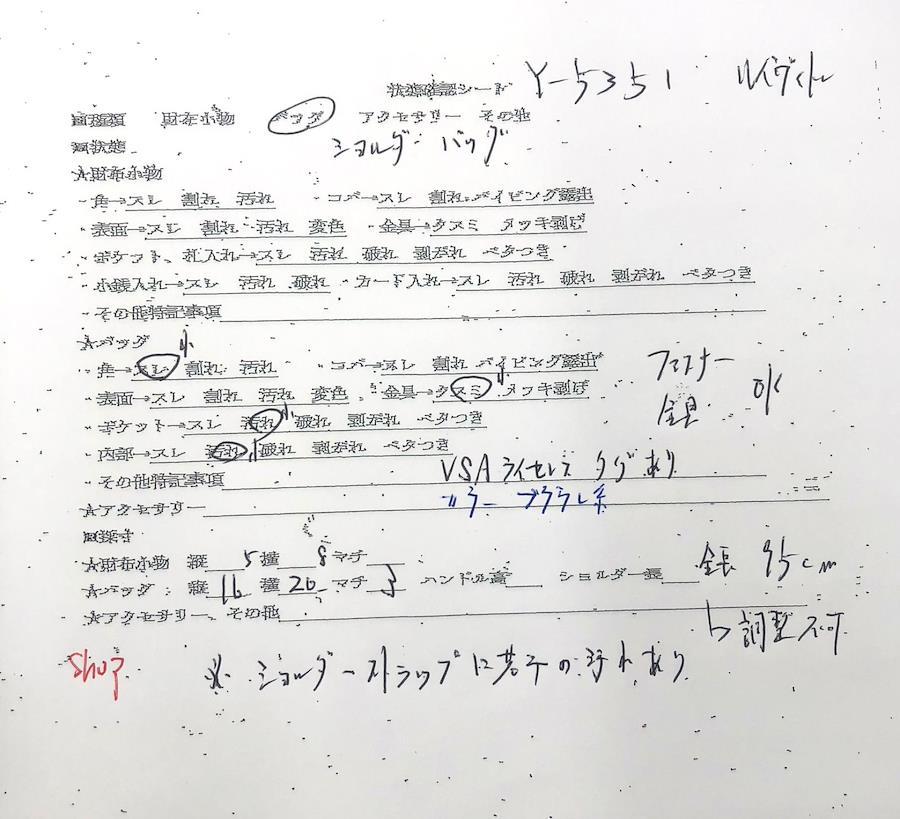 状態確認シート Y-5351 ルイヴィトン
■種類 財布小物 バッグ アクセサリー その他
ショルダーバッグ
■状態
★財布小物
・角→スレ 割れ 汚れ ・コバ→スレ 割れ パイピング露出
・表面→スレ 割れ 汚れ 変色 ・金具→クスミ メッキ剥げ
・ポケット、札入れ→スレ 汚れ 破れ 剥がれ ベタつき
・小銭入れ→スレ 汚れ 破れ ・カード入れ→スレ 汚れ 破れ 剥がれ ベタつき
・その他特記事項
★バッグ
小
・角→スレ 割れ 汚れ ・コバ→スレ 割れ パイピング露出
小
ファスナー
・表面→スレ 割れ 汚れ 変色 ・金具→クスミ メッキ剥げ
金具 OK
・ポケット→スレ 汚れ 小 破れ 剥がれ ベタつき
・内部→スレ 汚れ 小 破れ 剥がれ ベタつき
・その他特記事項 VSAライセンスタグあり
カラー ブラウン系
★アクセサリー
■採寸
★財布小物 縦 5 横 8 マチ
★バッグ 縦 16 横 20 マチ 3 ハンドル高 ショルダー長 全長 95cm
★アクセサリー、その他
↳調整不可
shop ※・ショルダーストラップに若干の汚れあり